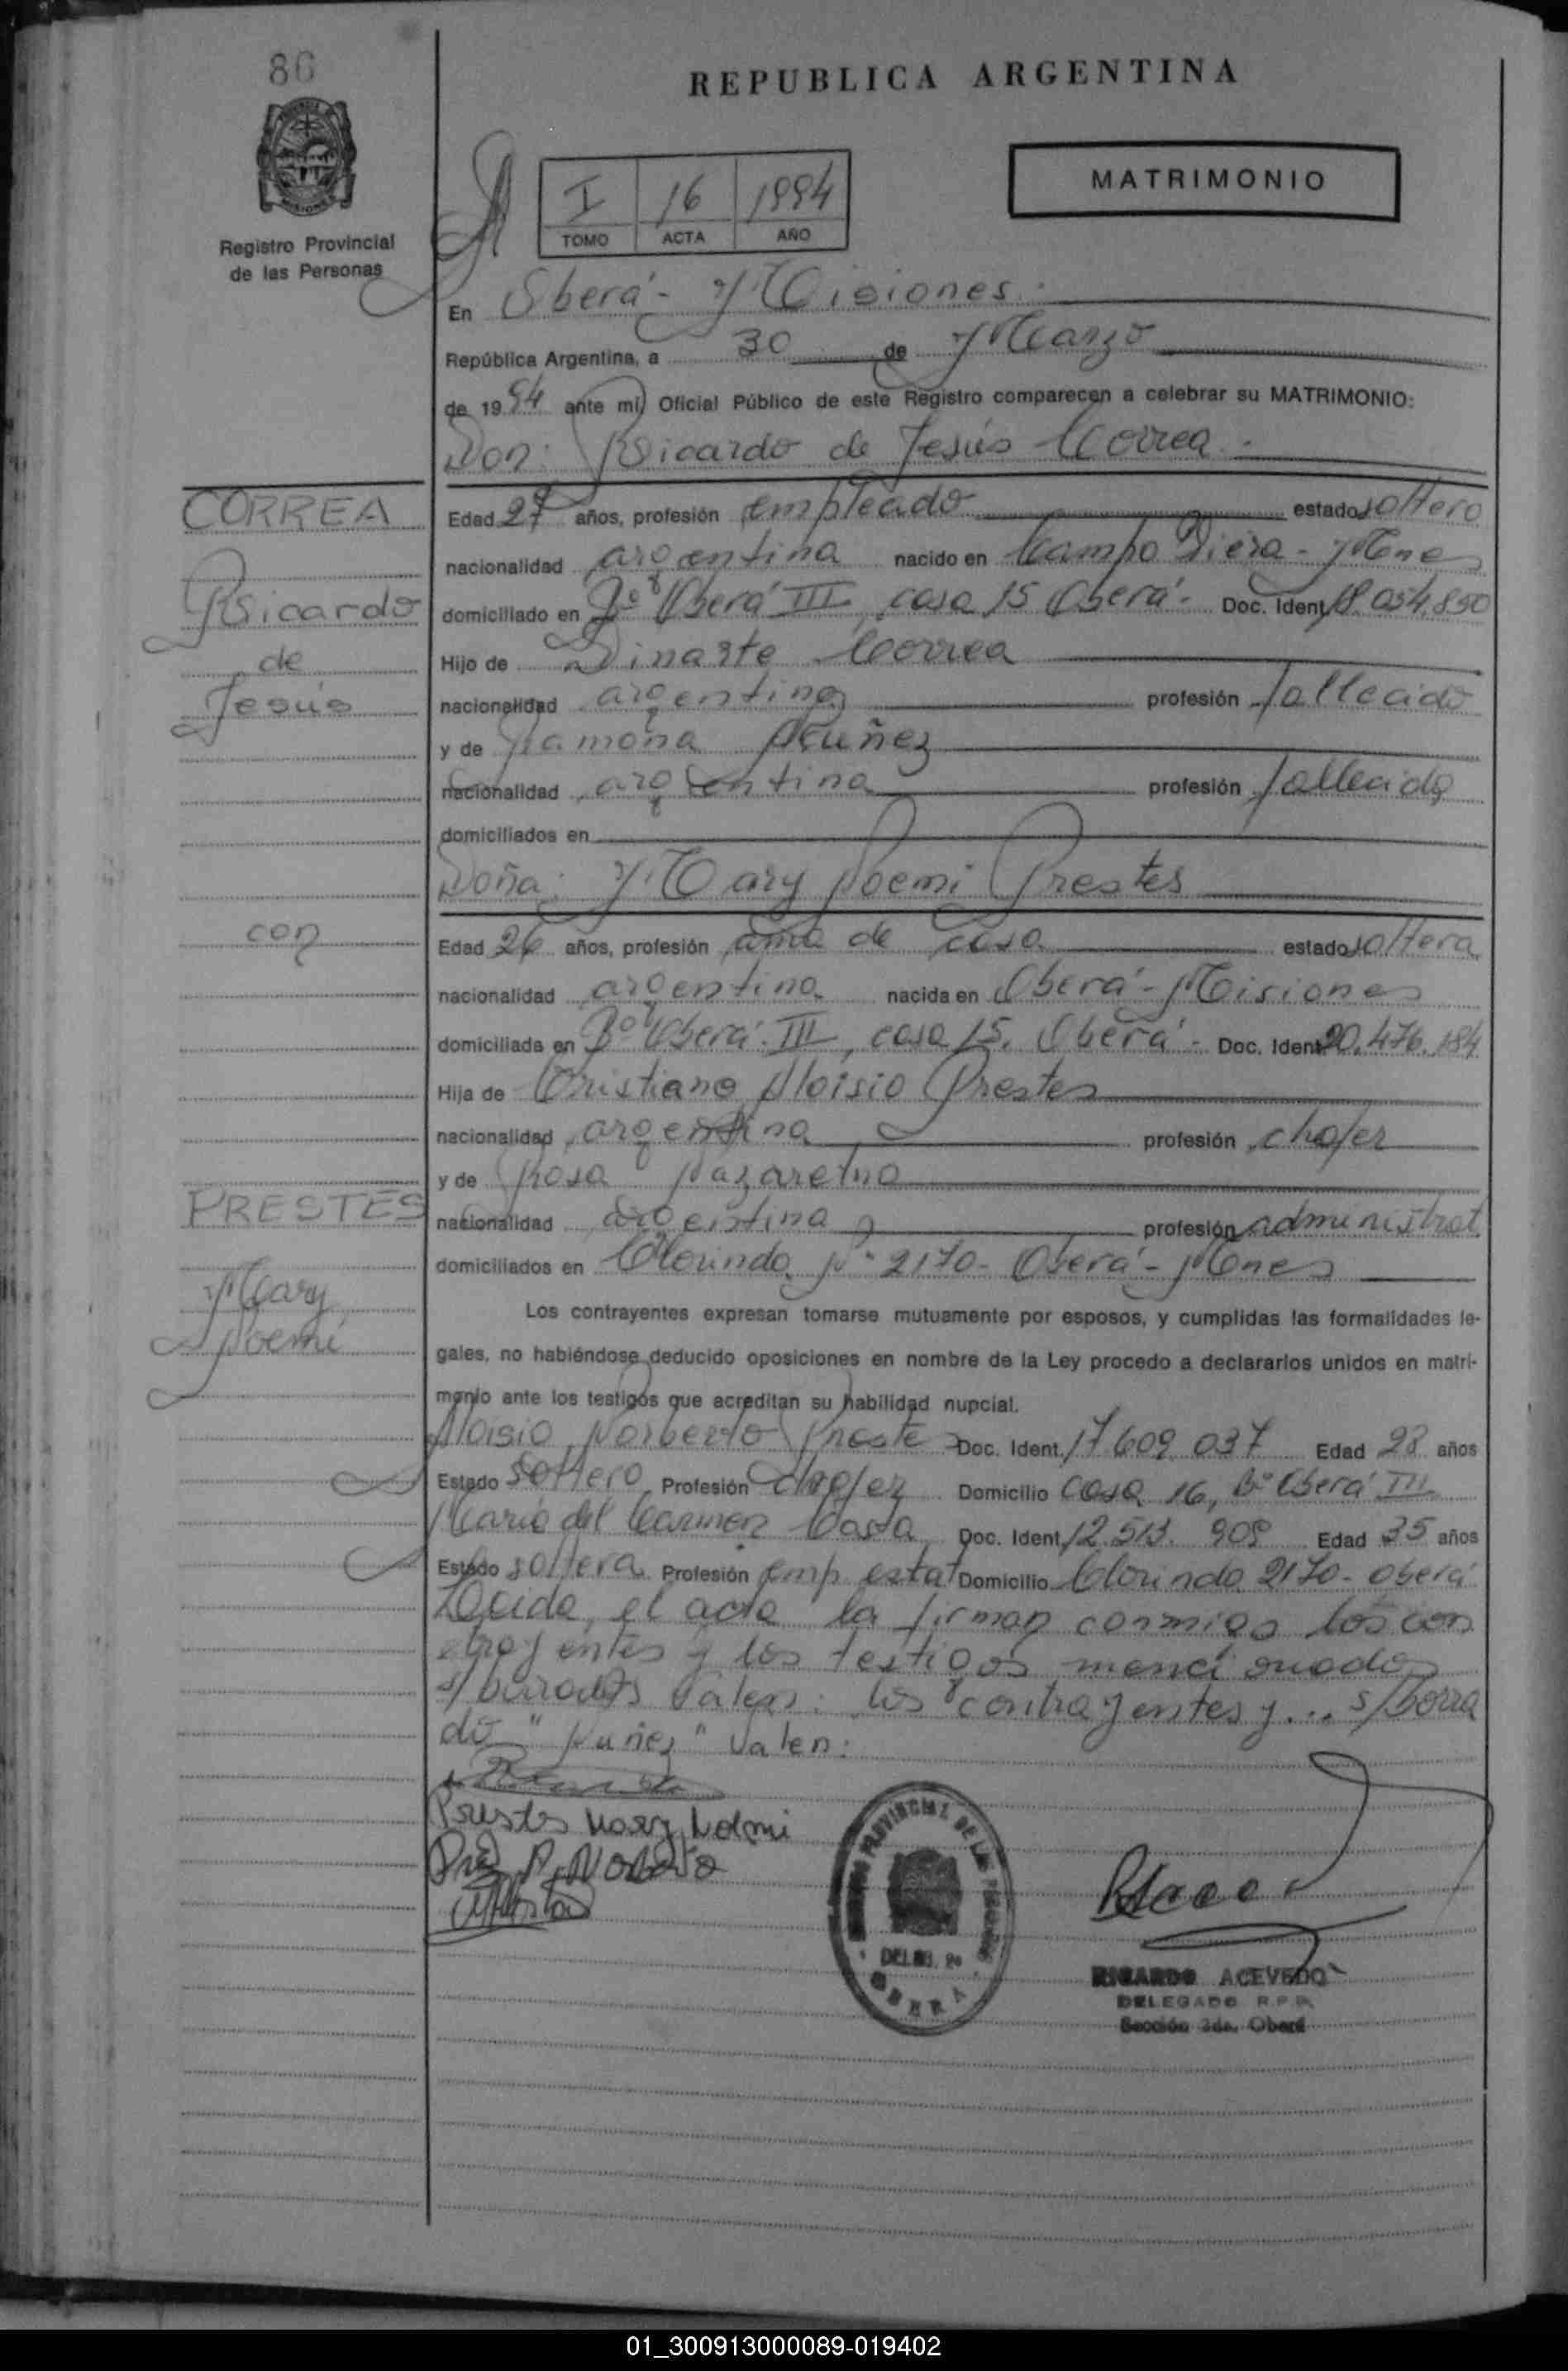 86
REPUBLICA ARGENTINA
MATRIMONIO
I 16 1994
TOMO ACTA AÑO
Registro Provincial
de las Personas
En Oberá - Misiones.
República Argentina, a 30 de Marzo
de 1994 ante mí, Oficial Público de este Registro comparecen a celebrar su MATRIMONIO:
Don: Ricardo de Jesús Correa.
CORREA
Ricardo
de
Jesús
Edad 27 años, profesión empleado estado soltero
nacionalidad argentina nacido en Campo Viera - Mnes
domiciliado en Bº Oberá III, casa 15 Oberá - Doc. Ident. 18.054.850
Hijo de Dinarte Correa
nacionalidad argentina profesión fallecido
y de Ramona Nuñez
nacionalidad argentina profesión fallecida
domiciliados en
Doña: Mary Noemi Prestes
con
Edad 26 años, profesión ama de casa estado soltera
nacionalidad argentina nacida en Oberá - Misiones
domiciliada en Bº Oberá III, casa 15. Oberá - Doc. Ident. 20.476.184
Hija de Cristiano Aloisio Prestes
nacionalidad argentina profesión chofer
y de Rosa Nazareno
nacionalidad argentina profesión administrat
domiciliados en Clorinda Nº 2170 - Oberá - Mnes
PRESTES
Mary
Noemí
Los contrayentes expresan tomarse mutuamente por esposos, y cumplidas las formalidades le-
gales, no habiéndose deducido oposiciones en nombre de la Ley procedo a declararlos unidos en matri-
monio ante los testigos que acreditan su habilidad nupcial.
Aloisio Norberto Prestes Doc. Ident. 17.609.037 Edad 28 años
Estado soltero Profesión chofer Domicilio casa 16, Bº Oberá III
María del Carmen Costa Doc. Ident. 12.513.909 Edad 35 años
Estado soltera Profesión emp. estat Domicilio Clorinda 2170 - Oberá
Leída el acta la firman conmigo los con
trayentes y los testigos mencionados
s/ valen: los contrayentes y... s/borra
do "Nuñez" Valen:
Prestes Mary Noemi
Norberto
REGISTRO PROVINCIAL DE LAS PERSONAS
OBERA
RICARDO ACEVEDO
DELEGADO R.P.P.
Sección 2da. Oberá
01_300913000089-019402